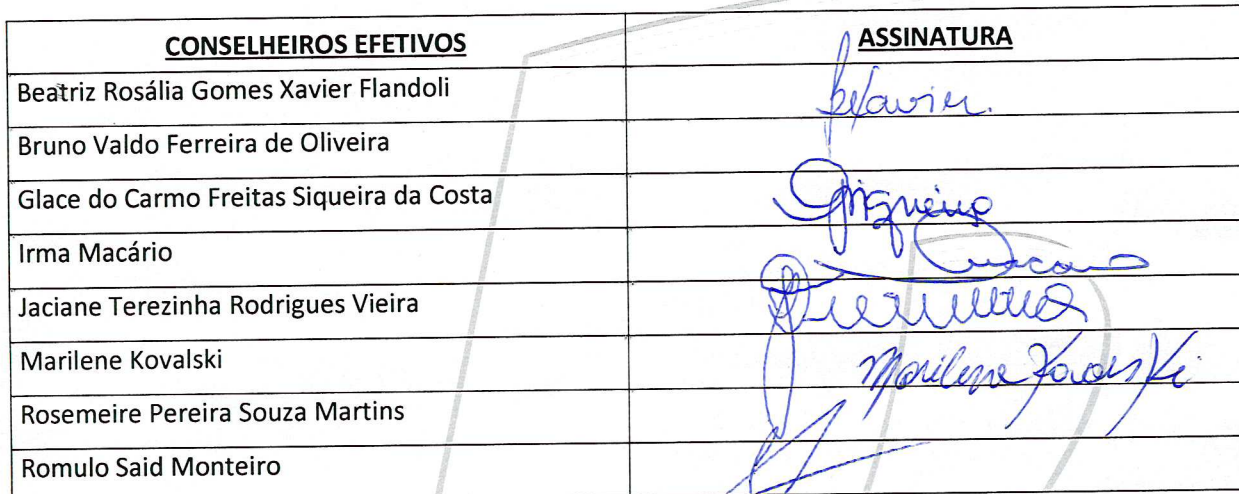 CONSELHEIROS EFETIVOS ASSINATURA
Beatriz Rosália Gomes Xavier Flandoli
Bruno Valdo Ferreira de Oliveira
Glace do Carmo Freitas Siqueira da Costa
Irma Macário
Jaciane Terezinha Rodrigues Vieira
Marilene Kovalski Marilene Kovalski
Rosemeire Pereira Souza Martins
Romulo Said Monteiro